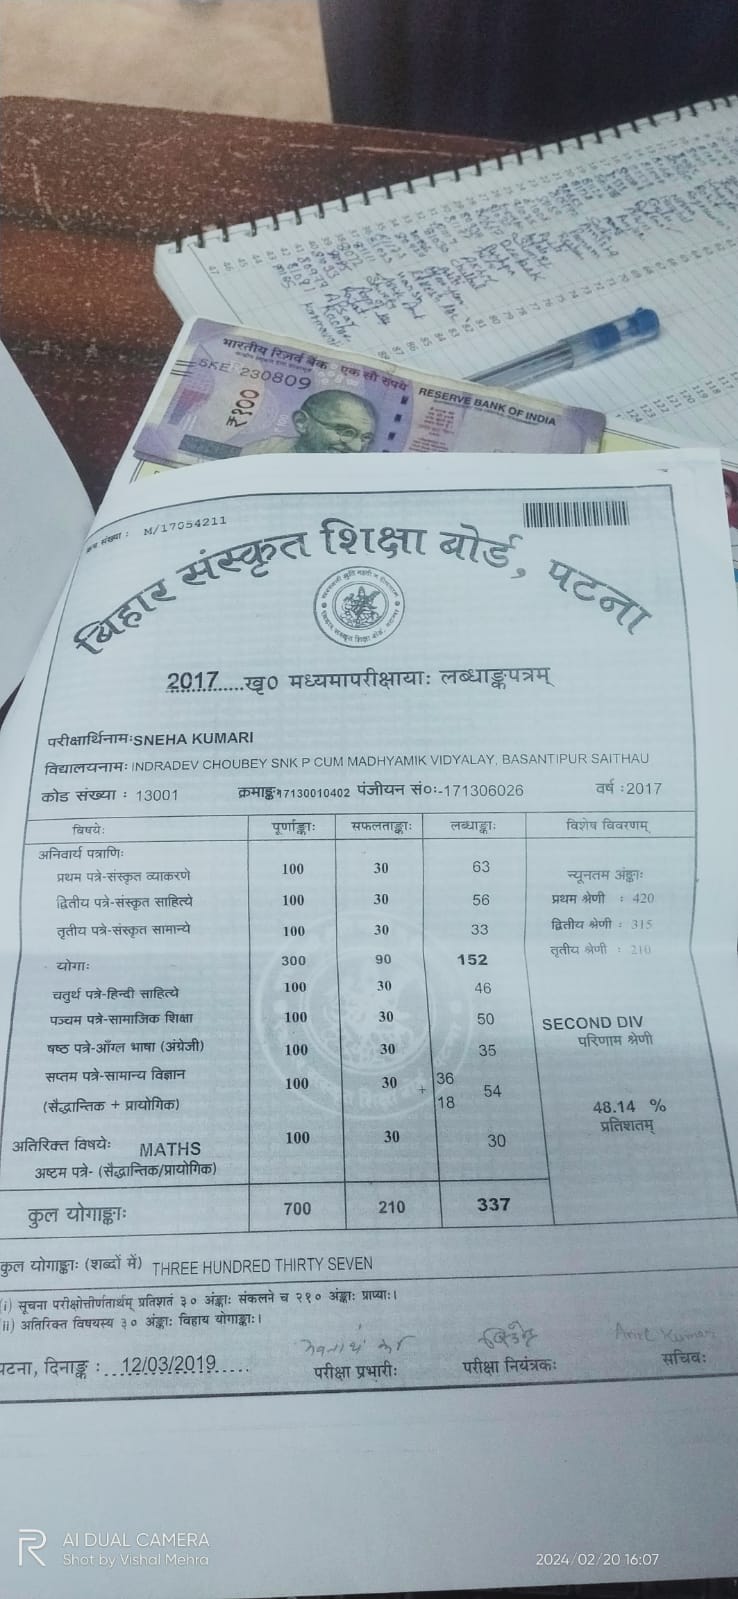 भारतीय रिज़र्व बैंक एक सौ रुपये
5KE 230809
RESERVE BANK OF INDIA
₹१००
क्रम संख्या : M/17054211
बिहार संस्कृत शिक्षा बोर्ड, पटना
2017.....खृ० मध्यमापरीक्षायाः लब्धाङ्कपत्रम्
परीक्षार्थिनामः SNEHA KUMARI
विद्यालयनामः INDRADEV CHOUBEY SNK P CUM MADHYAMIK VIDYALAY, BASANTIPUR SAITHAU
कोड संख्या : 13001 क्रमाङ्कः 17130010402 पंजीयन सं०:-171306026 वर्ष :2017
विषये: पूर्णाङ्काः सफलताङ्काः लब्धाङ्काः विशेष विवरणम्
अनिवार्य पत्राणिः
प्रथम पत्रे-संस्कृत व्याकरणे 100 30 63 न्यूनतम अंङ्काः
द्वितीय पत्रे-संस्कृत साहित्ये 100 30 56 प्रथम श्रेणी : 420
तृतीय पत्रे-संस्कृत सामान्ये 100 30 33 द्वितीय श्रेणी : 315
योगाः 300 90 152 तृतीय श्रेणी : 210
चतुर्थ पत्रे-हिन्दी साहित्ये 100 30 46
पञ्चम पत्रे-सामाजिक शिक्षा 100 30 50 SECOND DIV
षष्ठ पत्रे-आँग्ल भाषा (अंग्रेजी) 100 30 35 परिणाम श्रेणी
सप्तम पत्रे-सामान्य विज्ञान 100 30 + 36 54
(सैद्धान्तिक + प्रायोगिक) 18 48.14 %
प्रतिशतम्
अतिरिक्त विषयेः MATHS 100 30 30
अष्टम पत्रे- (सैद्धान्तिक/प्रायोगिक)
कुल योगाङ्काः 700 210 337
कुल योगाङ्काः (शब्दों में) THREE HUNDRED THIRTY SEVEN
(i) सूचना परीक्षोत्तीर्णतार्थम् प्रतिशतं ३० अंङ्काः संकलने च २१० अंङ्काः प्राप्याः।
(ii) अतिरिक्त विषयस्य ३० अंङ्काः विहाय योगाङ्काः।
Anil Kumar
पटना, दिनाङ्क : 12/03/2019 परीक्षा प्रभारीः परीक्षा नियंत्रकः सचिवः
AI DUAL CAMERA
Shot by Vishal Mehra
2024/02/20 16:07